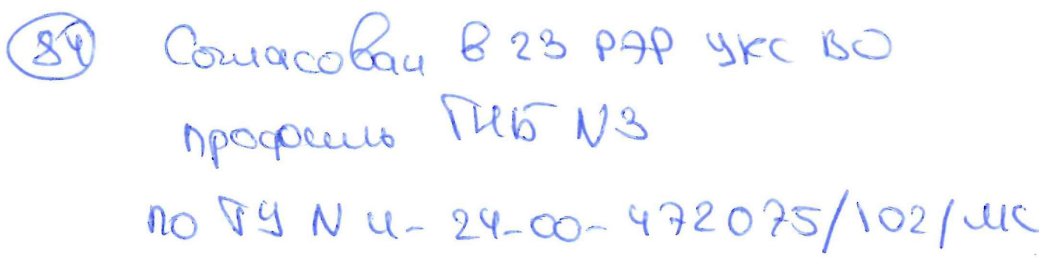 84 Согласован в 23 РЭР УКС ВО
профиль ГНБ N3
по ТУ N И-24-00-472075/102/МС